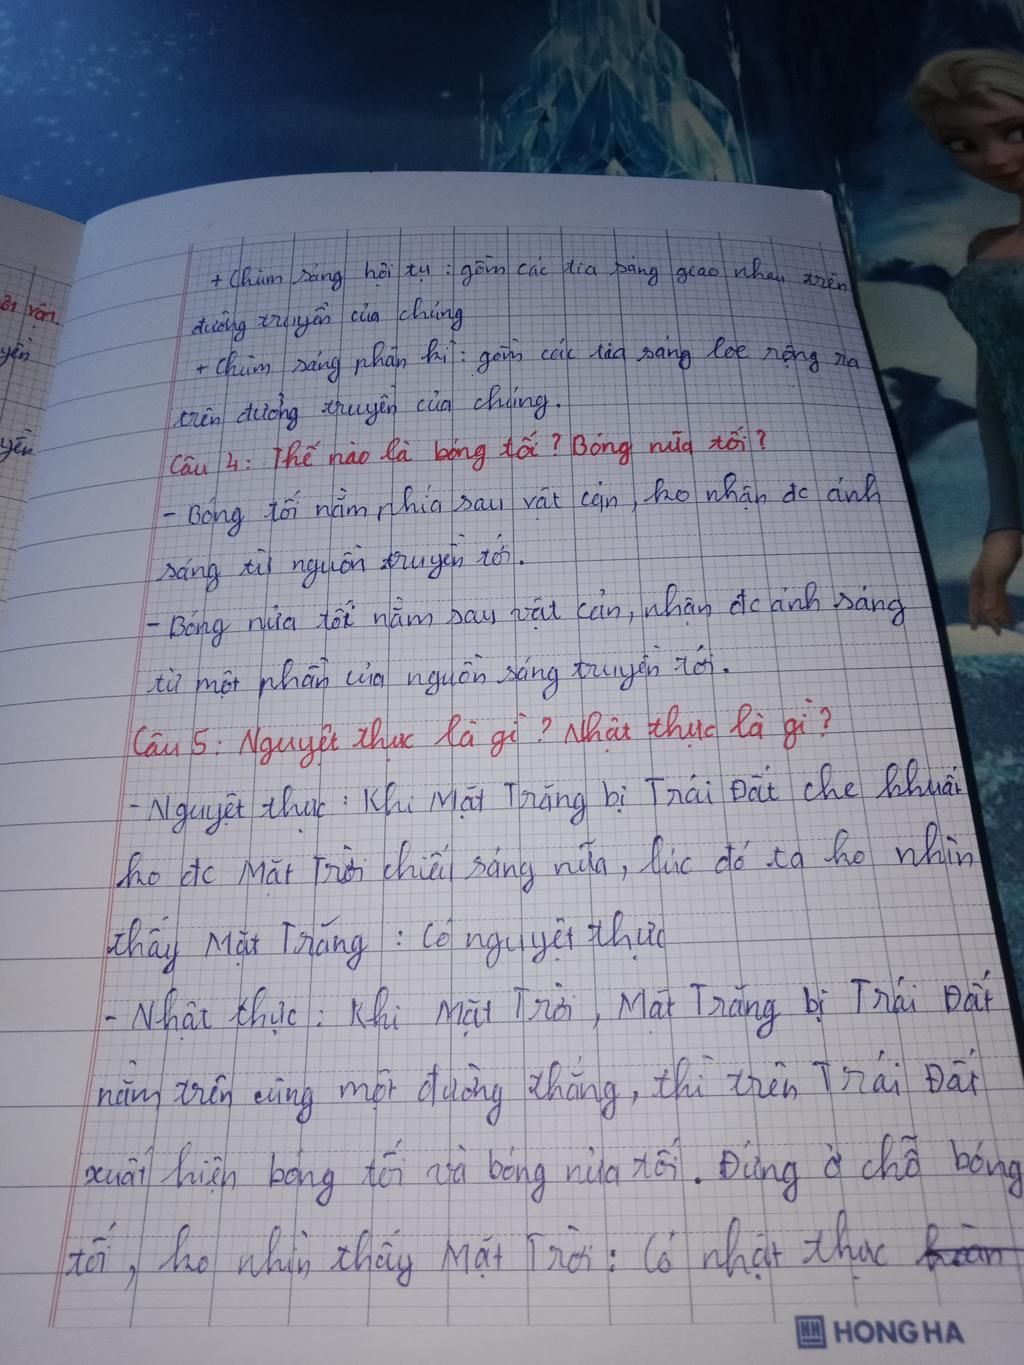 + Chùm sáng hội tụ : gồm các tia sáng giao nhau trên
đường truyền của chúng
+ Chùm sáng phân kì : gồm các tia sáng loe rộng ra
trên đường truyền của chúng.
Câu 4 : Thế nào là bóng tối ? Bóng nửa tối ?
- Bóng tối nằm phía sau vật cản, ko nhận đc ánh
sáng từ nguồn truyền tới.
- Bóng nửa tối nằm sau vật cản, nhận đc ánh sáng
từ một phần của nguồn sáng truyền tới.
Câu 5 : Nguyệt thực là gì ? Nhật thực là gì ?
- Nguyệt thực : Khi Mặt Trăng bị Trái Đất che khuất
ko đc Mặt Trời chiếu sáng nữa, lúc đó ta ko nhìn
thấy Mặt Trăng : Có nguyệt thực
- Nhật thực : Khi Mặt Trời, Mặt Trăng bị Trái Đất
nằm trên cùng một đường thẳng, thì trên Trái Đất
xuất hiện bóng tối và bóng nửa tối. Đứng ở chỗ bóng
tối, ko nhìn thấy Mặt Trời : Có nhật thực
yền
yền
HH HONG HA